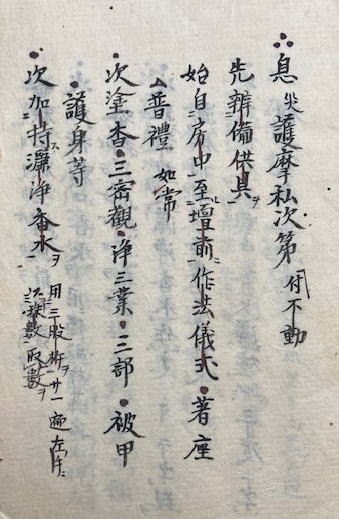 息災護摩私次第 付不動
先辨備供具ヲ
始自房中至壇前作法儀式・著座
普禮 如常
次塗香・三密觀・淨三業・三部・被甲
護身等
次加持灑淨香水ヲ 用三股杵ヲ廿一遍左ニ
以珠數取數ヲ